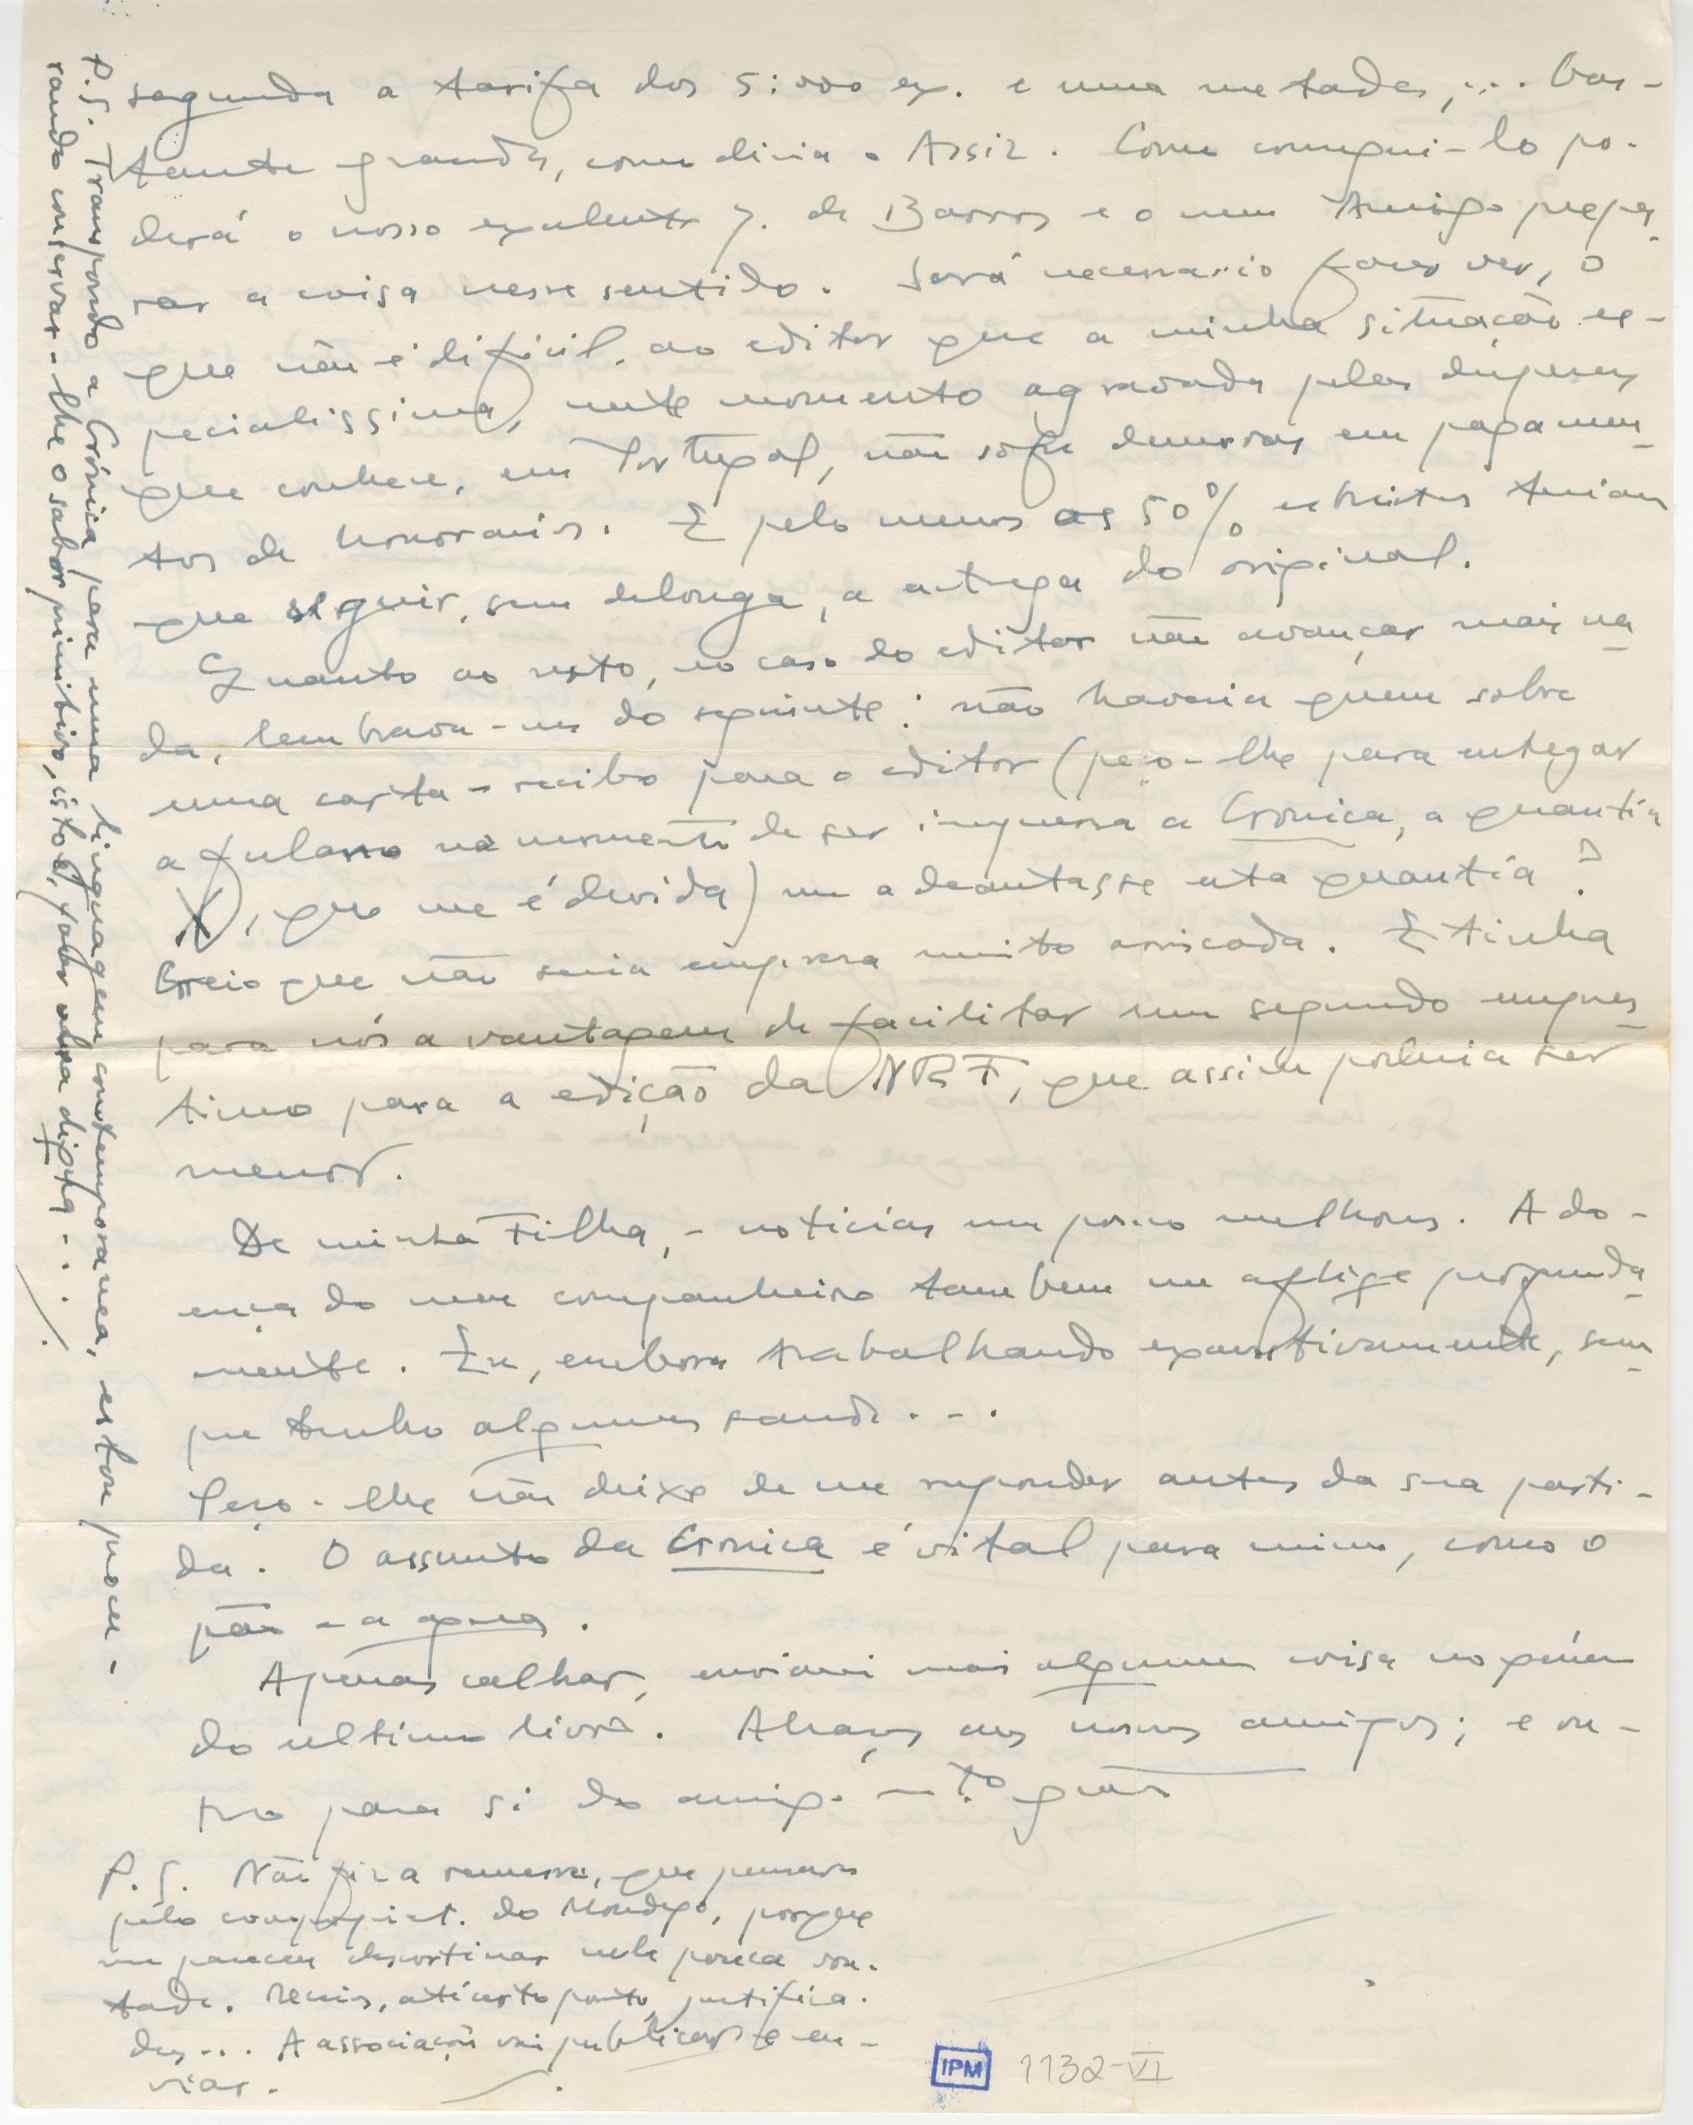 segunda a tarifa dos 5:000 ex. e uma metades,... bas-
tante grandes, como dizia o Assiz. Como consegui-lo po-
derá o nosso excelente J. de Barros e o meu Amigo prepa-
rar a coisa nesse sentido. Será necessario fazer ver, o
que não é dificil, ao editor que a minha situação es-
pecialissima, neste momento agravada pelas despesas
que conhece, em Portugal, não sofre demoras em pagamen-
tos de honorarios. E pelo menos as 50% restantes teriam
que seguir, sem delonga, a entrega do original.
Quanto ao resto, no caso do editor não avançar mais na-
da, lembrava-me do seguinte: não haveria quem sobre
uma carta-recibo para o editor (peço-lhe para entregar
a fulano no momento de ser impressa a Cronica, a quantía
X, que me é devida) me adeantasse esta quantía?
Creio que não seria empresa muito arriscada. E tinha
para nós a vantagem de facilitar um segundo empres-
timo para a edição da NRF, que assim poderia ser
menor.
De minha Filha, - noticias um pouco melhores. A do-
ença do meu companheiro tambem me aflige profunda-
mente. Eu, embora trabalhando exaustivamente, sem-
pre tenho alguma saude...
Peço-lhe não deixe de me responder antes da sua parti-
da. O assunto da Cronica é vital para mim, como o
pão e a agua.
Apenas calhar, enviarei mais alguma coisa no género
do ultimo livro. Abraços aos nossos amigos; e ou-
tro para si do amigo m.to grato
P.S. Não fiz a remessa, que pensava
pelo do Mondego, porque
me pareceu descortinar nele pouca von-
tade. Receios, até certo ponto, justifica-
dos... A associação vai publicar e en-
viar.
P.S. Transpondo a Crónica para uma linguagem contemporanea, estou procu-
rando conservar-lhe o sabor primitivo, isto é, fazer obra digna...
IPM 1132-VI